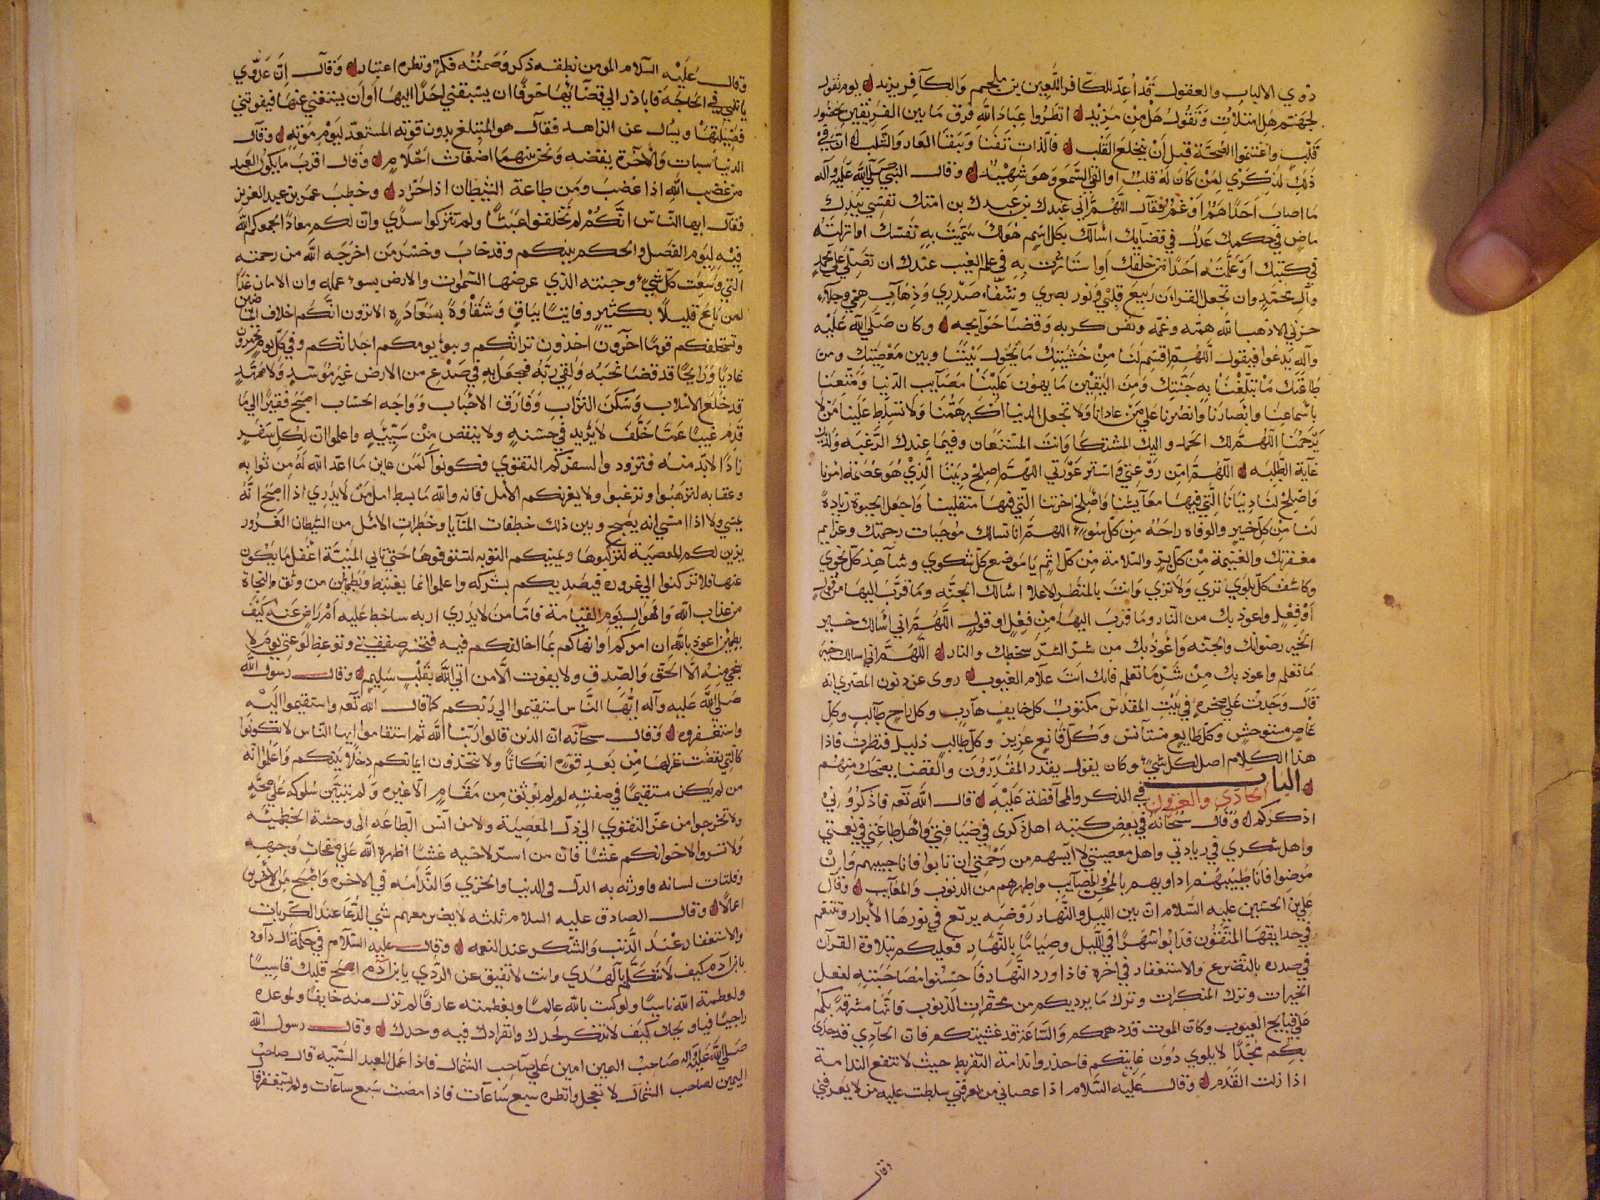 ذوي الالباب والعقول قد اعد للكافر اللعين بن ملجم والكافر يزيد يوم نقول
لجهنم هل امتلات وتقول هل من مزيد انظروا عباد الله فرق ما بين الفريقين بحضور
قلب واغتنموا الصحة قبل ان ينخلع القلب فاللذات تفنا ويبقا العار والثلب ان في
ذلك لذكرى لمن كان له قلب او القى السمع وهو شهيد وقال النبي صلى الله عليه وآله
ما اصاب احدا هم او غم فقال اللهم اني عبدك بن عبدك بن امتك نفسي بيدك
ماض في حكمك عدل في قضايك اسالك بكل اسم هو لك سميت به نفسك او انزلته
في كتبك او علمته احدا من خلقك او استاثرت به في علم الغيب عندك ان تصلي على محمد
وآل محمد وان تجعل القران ربيع قلبي ونور بصري وشفاء صدري وذهاب همي وجلاء
حزني الا ذهب الله همه وغمه ونفس كربه وقضا حوايجه وكان صلى الله عليه
وآله يدعوا فيقول اللهم اقسم لنا من خشيتك ما يحول بيننا وبين معصيتك ومن
طاعتك ما تبلغنا به جنتك ومن اليقين ما يهون علينا مصايب الدنيا ومتعنا
باسماعنا وابصارنا وانصرنا على من عادانا ولا تجعل الدنيا اكبر همنا ولا تسلط علينا من لا
يرحمنا اللهم لك الحمد واليك المشتكا وانت المستعان وفيما عندك الرغبه ولديك
غاية الطلبه اللهم امن روعتي واستر عورتي اللهم اصلح ديننا الذي هو عصمة امرنا
واصلح لنا دنيانا التي فيها معايشنا واصلح اخرتنا التي فيها منقلبنا واجعل الحيوة زيادة
لنا من كل خير والوفاه راحة من كل سوء اللهم انا نسالك موجبات رحمتك وعزايم
مغفرتك والغنيمة من كل بر والسلامة من كل اثم يا موضع كل شكوى وشاهد كل نجوى
وكاشف كل بلوى ترى ولا ترى وانت بالمنظر الاعلا اسالك الجنه وما قرب اليها من قول
او فعل واعوذ بك من النار وما قرب اليها من فعل او قول اللهم اني اسالك خير
الخير رضوانك والجنه واعوذ بك من شر الشر سخطك والنار اللهم اني اسالك خير
ما تعلم واعوذ بك من شر ما تعلم فانك انت علام الغيوب روى عن ذنون المصري انه
قال وجدت على صخرة في بيت المقدس مكتوب كل خايف هارب وكل راج طالب وكل
عاص مستوحش وكل طايع مستانس وكل قانع عزيز وكل طالب ذليل فنظرت فاذا
هذا الكلام اصل لكل شيء وكان يقول يقدر المقدرون والقضا يضحك منهم
الباب الحادي والعشرون في الذكر والمحافظة عليه قال الله تعه فاذكروني
اذكركم وقال سبحانه في بعض كتبه اهل ذكري في ضيافتي واهل طاعتي في نعمتي
واهل شكري في زيادتي واهل معصيتي لا ايسهم من رحمتي ان تابوا فانا حبيبهم وان
مرضوا فانا طبيبهم اداويهم بالمحن والمصايب واطهرهم من الذنوب والمعايب وقال
علي بن الحسين عليه السلام ان بين الليل والنهار روضه يرتع في نورها الابرار وتتنعم
في حدايقها المتقون فدابوا سهرا في الليل وصياما بالنهار فعليكم بتلاوة القرآن
في صدره بالتضرع والاستغفار في اخره فاذا ورد النهار فاحسنوا مصاحبته لفعل
الخيرات وترك المنكرات وترك ما يرديكم من محقرات الذنوب فانها مشرفة بكم
على قبايح العيوب وكان الموت قد دهمكم والساعة قد غشيتكم فان الحادي قد حدى
بكم مجدا لا يلوي دون غايتكم فاحذروا ندامة التفريط حيث لا تنفع الندامة
اذا زلت القدم وقال عليه السلام اذا عصاني من يعرفني سلطت عليه من لا يعرفني
وقال
وقال عليه السلام المومن نطقه ذكر وصمته فكر ونظره اعتبار وقال ان عدوي
ياتيني في الحاجة فابادر الى قضائها خوفا ان يسبقني احد اليها او ان يستغني عنها فيفوتني
فضيلتها وسئل عن الزاهد فقال هو المتبلغ بدون قوته المستعد ليوم موته وقال
الدنيا سبات والاخرة يقضه ونحن بينهما اضغاث احلام وقال اقرب ما يكون العبد
من غضب الله اذا غضب ومن طاعة الشيطان اذا حرد وخطب عمر بن عبد العزيز
فقال ايها الناس انكم لم تخلقوا عبثا ولم تتركوا سدى وان لكم معادا يجمعكم الله
فيه ليوم الفصل والحكم بينكم وقد خاب وخسر من اخرجه الله من رحمته
التي وسعت كل شيء وجنته الذي عرضها السموات والارض بسوء عمله وان الامان غدا
لمن باع قليلا بكثير وفانيا بباق وشقاوة بسعاده الا ترون انكم اخلاف الماضين
وستخلفكم قوما آخرون اخذون تراثكم وبيوا يومكم اجداثكم وفي كل يوم تجهزون
غاديا ورايحا قد قضا نحبه ولقي ربه فتجعل به في صدع من الارض غير موسد ولا ممهد
قد خلع الاسلاب وسكن التراب وفارق الاحباب وواجه الحساب اصبح فقيرا الى ما
قدم غنيا عما خلف لا يزيد في حسنه ولا ينقص من سيئه واعلموا ان لكل سفر
زادا لابد منه فتزود والسفركم التقوى فكونوا كمن عاين ما اعد الله له من ثوابه
وعقابه لترهبوا وترغبوا ولا يغرنكم الامل فانه والله ما بسط امل من لا يدري اذا اصبح انه
يمسي ولا اذا امسى انه يصبح وبين ذلك خطفات المنايا وخطرات الامل من الشيطان الغرور
يزين لكم المعصية لتركبوها ويمنيكم التوبه لتسوفوها حتى تاتي المنية اغفل ما يكون
عنها فلا تركنوا الى غروره فيصيدكم بشركه واعلموا انما يغتبط ويطمئن من وثق بالنجاة
من عذاب الله واهوال يوم القيامة فاما من لا يدري اربه ساخط عليه ام راض عنه كيف
يطمئن اعوذ بالله ان امركم او انهاكم عما اخالفكم فيه فتخسر صفقتي وتوعظ لوعتي يوم لا
ينجي منه الا الحق والصدق ولا يفوت الا من اتى الله بقلب سليم وقال رسول الله
صلى الله عليه وآله ايها الناس استقيموا الى ربكم كما قال الله تعه واستقيموا اليه
واستغفروه وقال سبحانه ان الذين قالوا ربنا الله ثم استقاموا ايها الناس لا تكونوا
كالتي نقضت غزلها من بعد قوة انكاثا ولا تتخذون ايمانكم دخلا بينكم واعلموا انه
من لم يكن مستقيما في صفته لم يرتق من مقام الى غيره ولم يتبين سلوكه على صحة
ولا تخرجوا من عز التقوى الى ذل المعصية ولا من انس الطاعه الى وحشة الخطيئه
ولا تسروا لاخوانكم غشا فان من اسر لاخيه غشا اظهره الله على صفحات وجهه
وفلتات لسانه واورثه به الذل في الدنيا والخزي والندامه في الاخره واصبح من الاخسرين
اعمالا وقال الصادق عليه السلام ثلثه لا يضر معهم شي الدعا عند الكربات
والاستغفار عند الذنب والشكر عند النعمه وقال عليه السلام في حكمة ال داود
يا بن آدم كيف لا تتكلم بالهدى وانت لا تفيق عن الردي يا بن آدم اصبح قلبك قاسيا
ولعظمة الله ناسيا ولو كنت بالله عالما وبعظمته عارفا لم تزل منه خايفا ولوعده
راجيا فيا ويحك كيف لا تذكر لحدك وانفرادك فيه وحدك وقال رسول الله
صلى الله عليه وآله صاحب اليمين امين على صاحب الشمال فاذا عمل العبد السيئه قال صاحب
اليمين لصاحب الشمال لا تعجل وانظره سبع ساعات فاذا مضت سبع ساعات ولم يستغفر قال